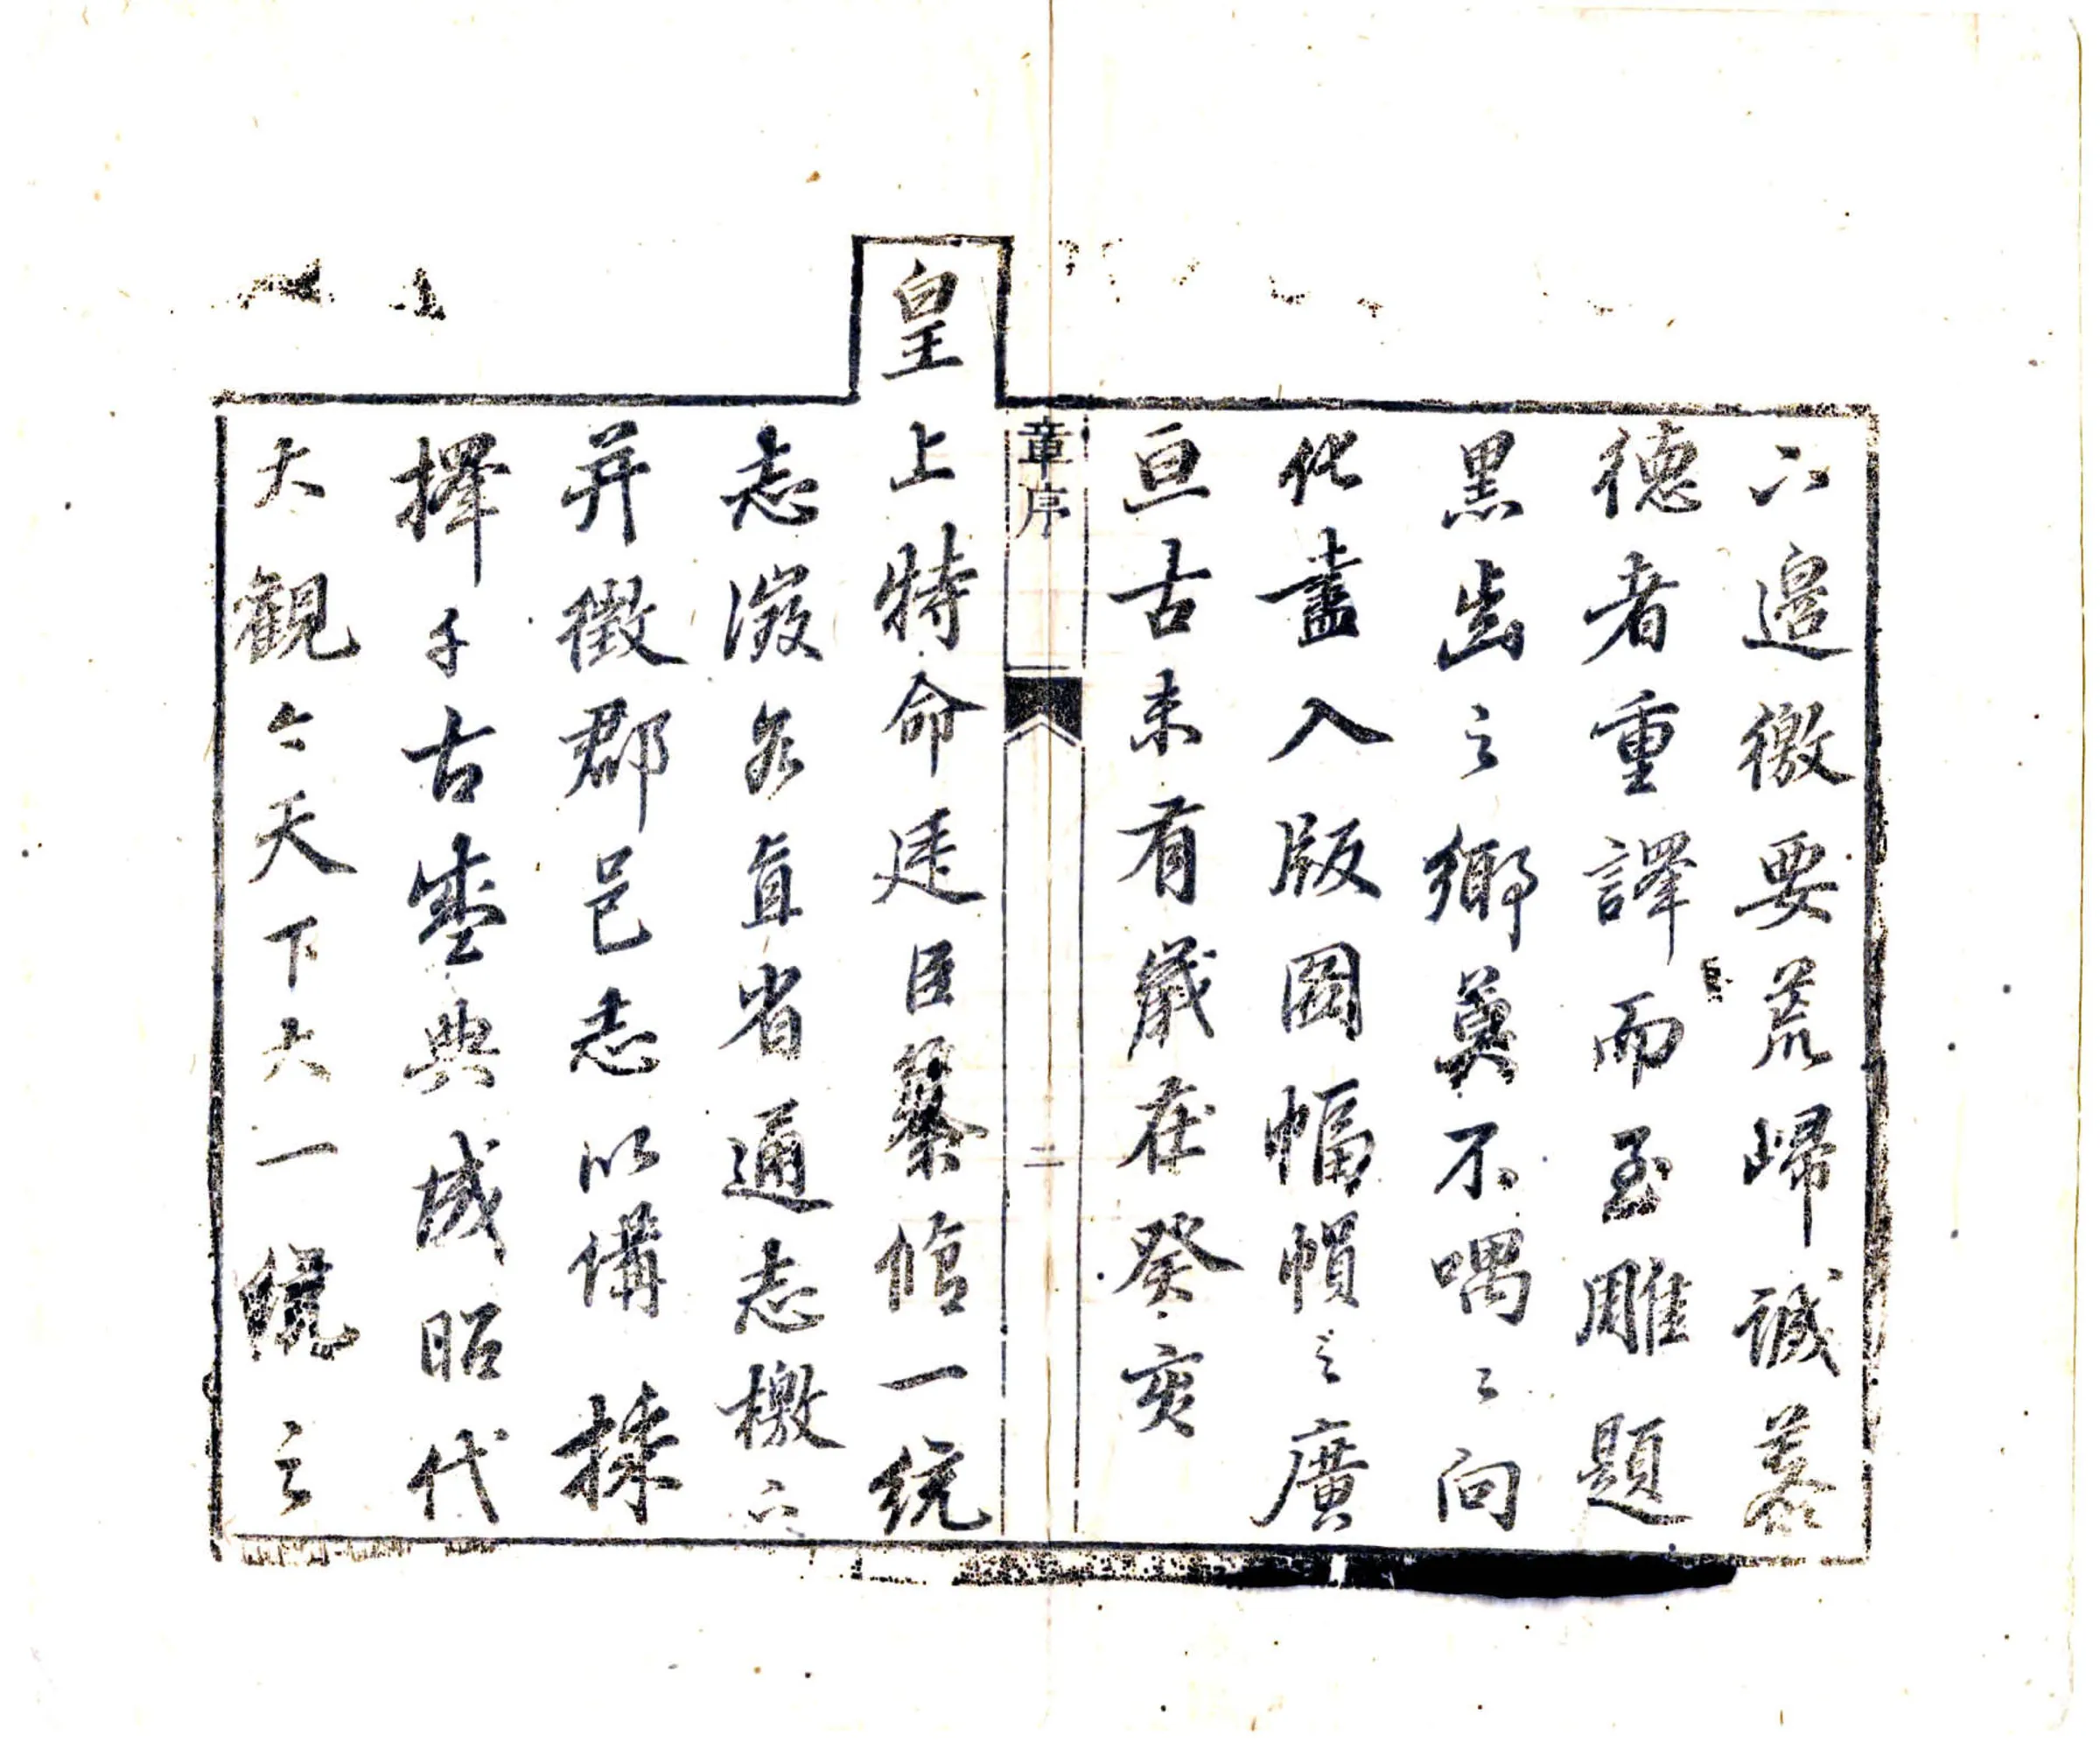 六邉徼要荒歸誠慕
德者重譯而至雕題
黑齒之鄉莫不喁〻向
化盡入版圖幅帻之廣
亘古未有歲在癸亥
章序
二
皇上特命廷臣纂脩一統
志激各直省通志檄六
并徵郡邑志以備採
擇千古盛典成昭代
大觀今天下大一統之